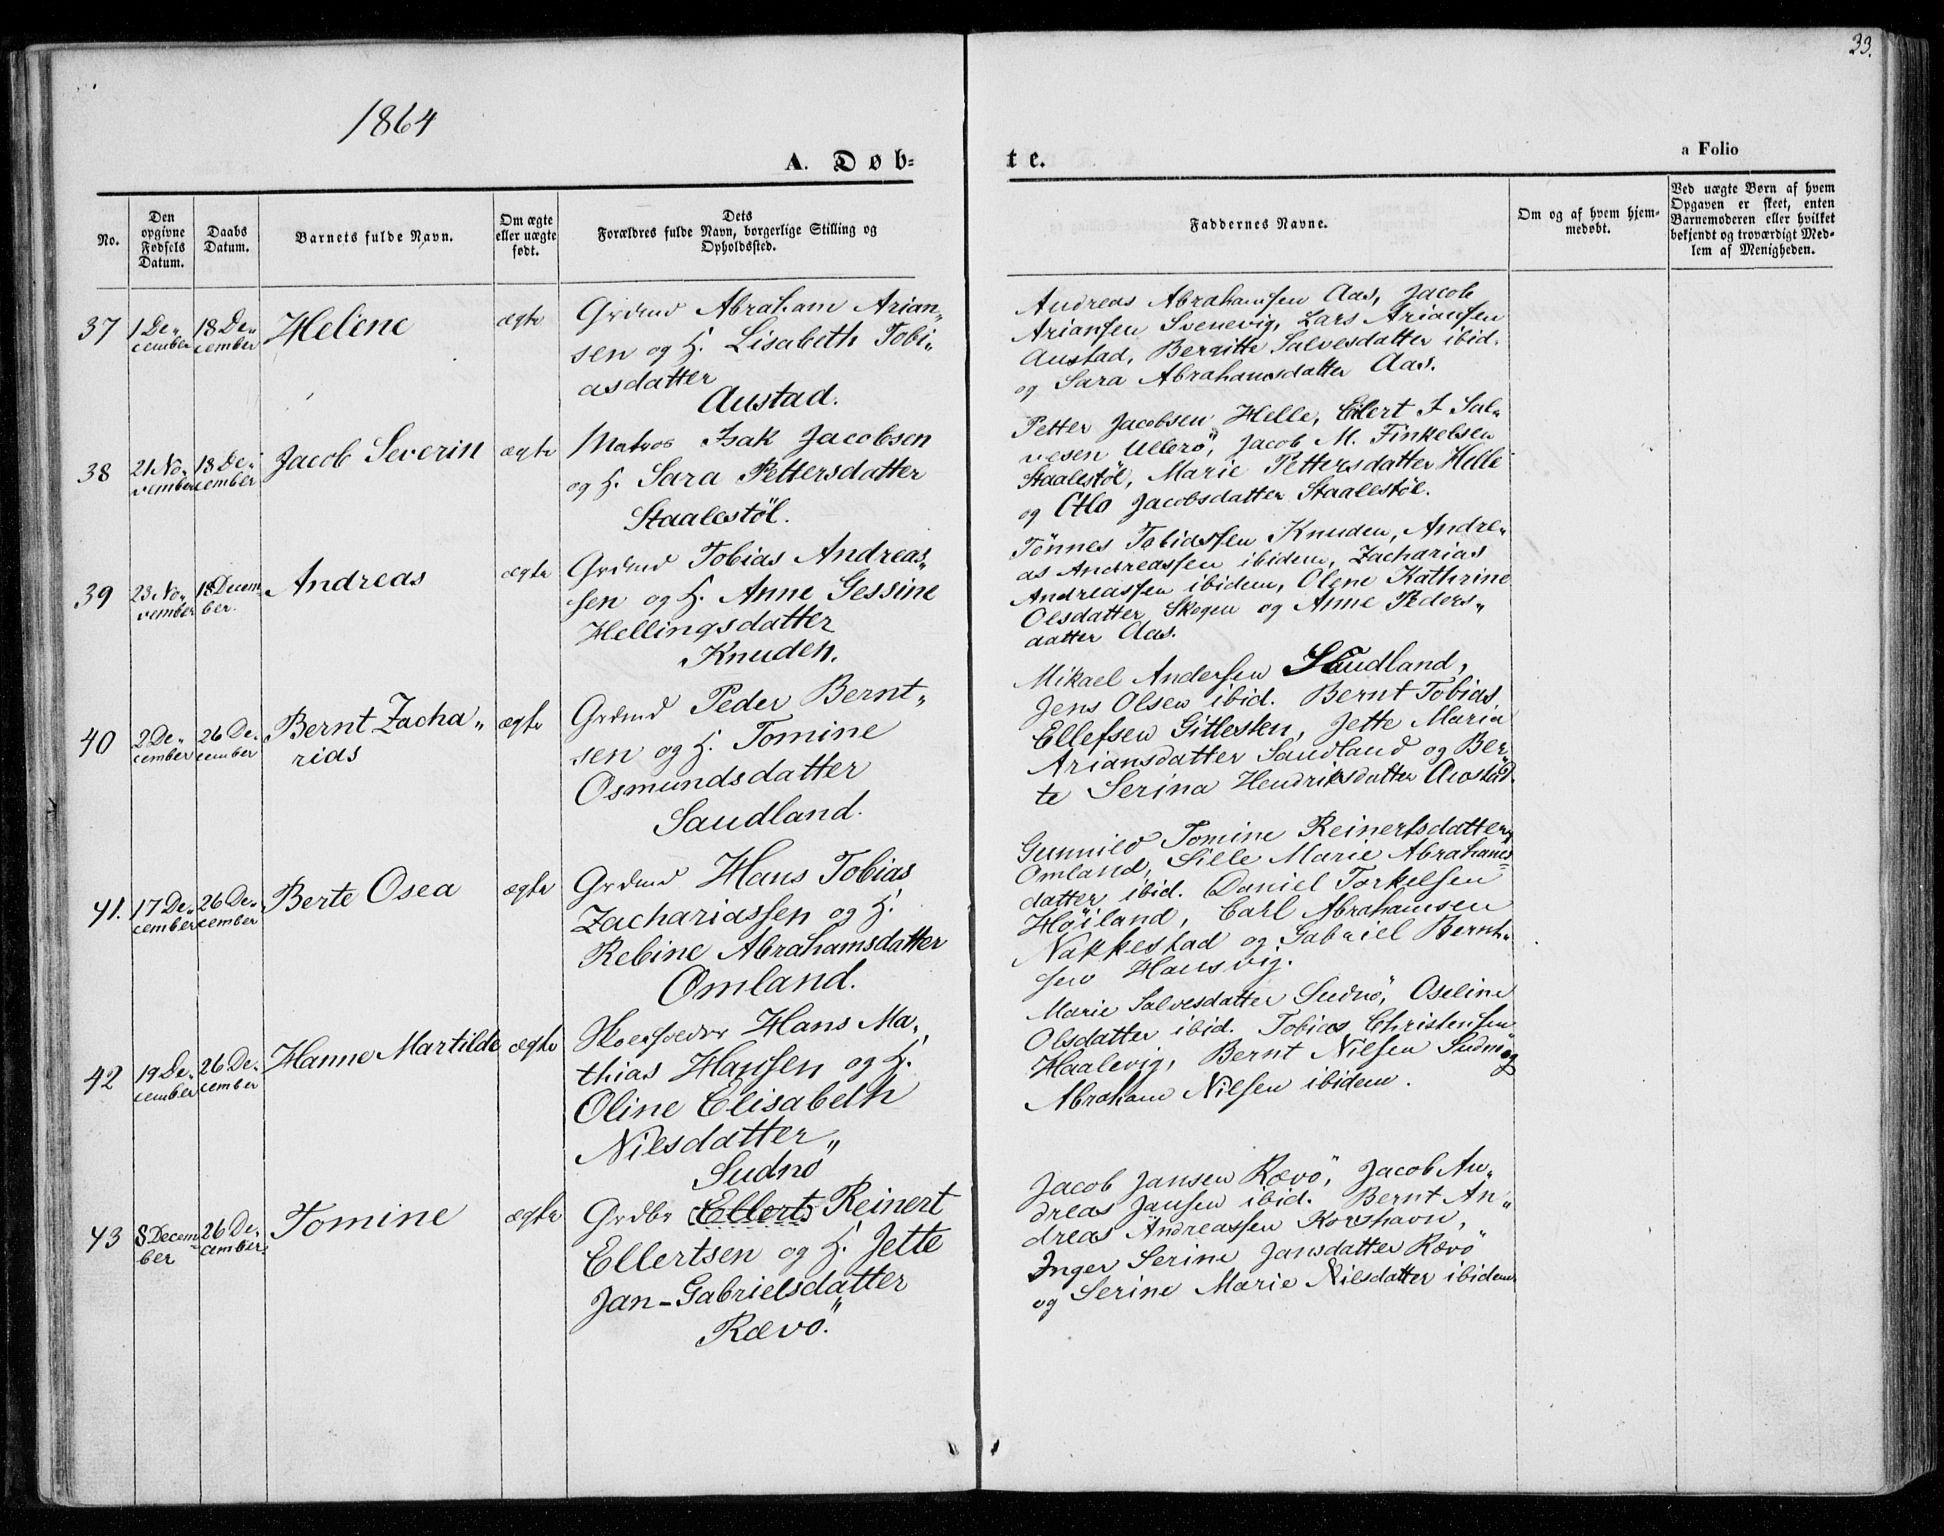 33.
1864
A. Døb-
te.
a Folio
No.
Den
opgivne
Fødsels
Datum.
Daabs
Datum.
Barnets fulde Navn.
Om ægte
eller uægte
født.
Dets
Forældres fulde Navn, borgerlige Stilling og
Opholdssted.
Faddernes Navne.
Om og af hvem hjem-
medøbt.
Ved uægte Børn af hvem
Opgaven er skeet, enten
Barnemoderen eller hvilket
bekjendt og troværdigt Med-
lem af Menigheden.
37
1 De-
cember
18 De-
cember
Helene
ægte
Grdmd Abraham Arian-
sen og H. Lisabeth Tobi-
asdatter
Austad.
Andreas Abrahamsen Aas, Jacob
Ariansen Svenevig, Lars Ariansen
Austad, Bergitte Salvesdatter ibid.
og Sara Abrahamsdatter Aas.
38
21 No-
vember
18 De-
cember
Jacob Severin
ægte
Matros Isak Jacobsen
og H. Sara Pettersdatter
Staalestöl.
Petter Jacobsen Helle, Eilert I Sal-
vesen Ullerö, Jacob M. Finkelsen
Staalestöl, Marie Pettersdatter Helle
og Otto Jacobsdatter Staalestöl.
39
23 No-
vember
18 Decem-
ber.
Andreas
ægte
Grdmd Tobias Andreas-
sen og H. Anne Gessine
Hellingsdatter
Knuden.
Tönnes Tobiassen Knuden, Andre-
as Andreassen ibidem, Zacharias
Andreassen ibidem, Olene Kathrine
Olsdatter Skogen og Anne Peders-
datter Aas.
40
2 De-
cember
26 De-
cember
Bernt Zacha-
rias
ægte
Grdmd Peder Bernt-
sen og H. Tomine
Osmundsdatter
Saudland.
Mikael Andersen Saudland,
Jens Olsen ibid. Bernt Tobias
Ellefsen Gitlesten, Jette Maria
Ariansdatter Saudland og Ber-
te Serina Hendriksdatter Austad.
41.
17 De-
cember
26 De-
cember
Berte Osea
ægte
Grdmd Hans Tobias
Zachariassen og H.
Rebine Abrahamsdatter
Omland.
Gunnild Tomine Reinertsdatter
Omland, Sille Marie Abrahams-
datter ibid. Daniel Torkelsen
Höiland, Carl Abrahamsen
Nakkestad og Gabriel Bernt-
sen Hausvig.
42
19 De-
cember
26 De-
cember
Hanne Martilde
ægte
Hans Ma-
thias Hansen og H.
Oline Elisabeth
Nilsdatter
Sudnö
Marie Salvesdatter Sudnö, Oseline
Olsdatter ibid. Tobias Christensen
Haalevig, Bernt Nilsen Sudnö og
Abraham Nilsen ibidem.
43
8 Decem-
ber
26 De-
cember
Tomine
ægte
Grdbr Ellerts Reinert
Ellertsen og H. Jette
Jan-Gabrielsdatter
Rævö.
Jacob Jansen Rævö, Jacob An-
dreas Jansen ibid. Bernt An-
dreas Andreassen Korshavn,
Inger Serine Jansdatter Rævö
og Serine Marie Nilsdatter ibidem